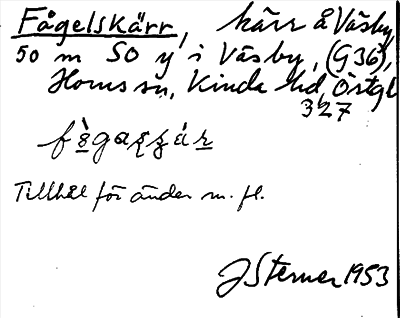 Fågelskärr, kärr å Väsby,
50 m SO y i Väsby, (G36),
Horns sn, Kinda hd, Östgl
327
Tillhåll för änder m. fl.
JSterner 1953